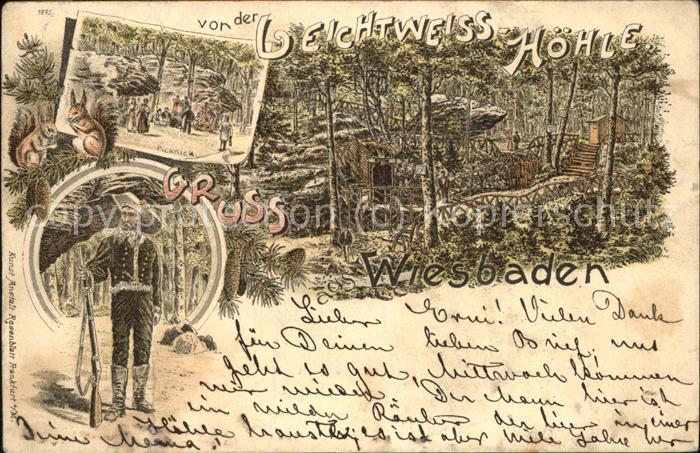 1875
von der LEICHTWEISS-HÖHLE.
Picknick.
GRUSS
aus
Wiesbaden
Kunst Anstalt Rosenblatt Frankfurt a/M.
copyright Kopierschutz
Lieber Erni! Vielen Dank
für Deinen lieben Brief, uns
geht es gut, Mittwoch kommen
wir wieder. Der Mann hier ist
ein wilder Räuber der hier in einer
Höhle hauste, es ist aber viele Jahre her
Deine Mama!